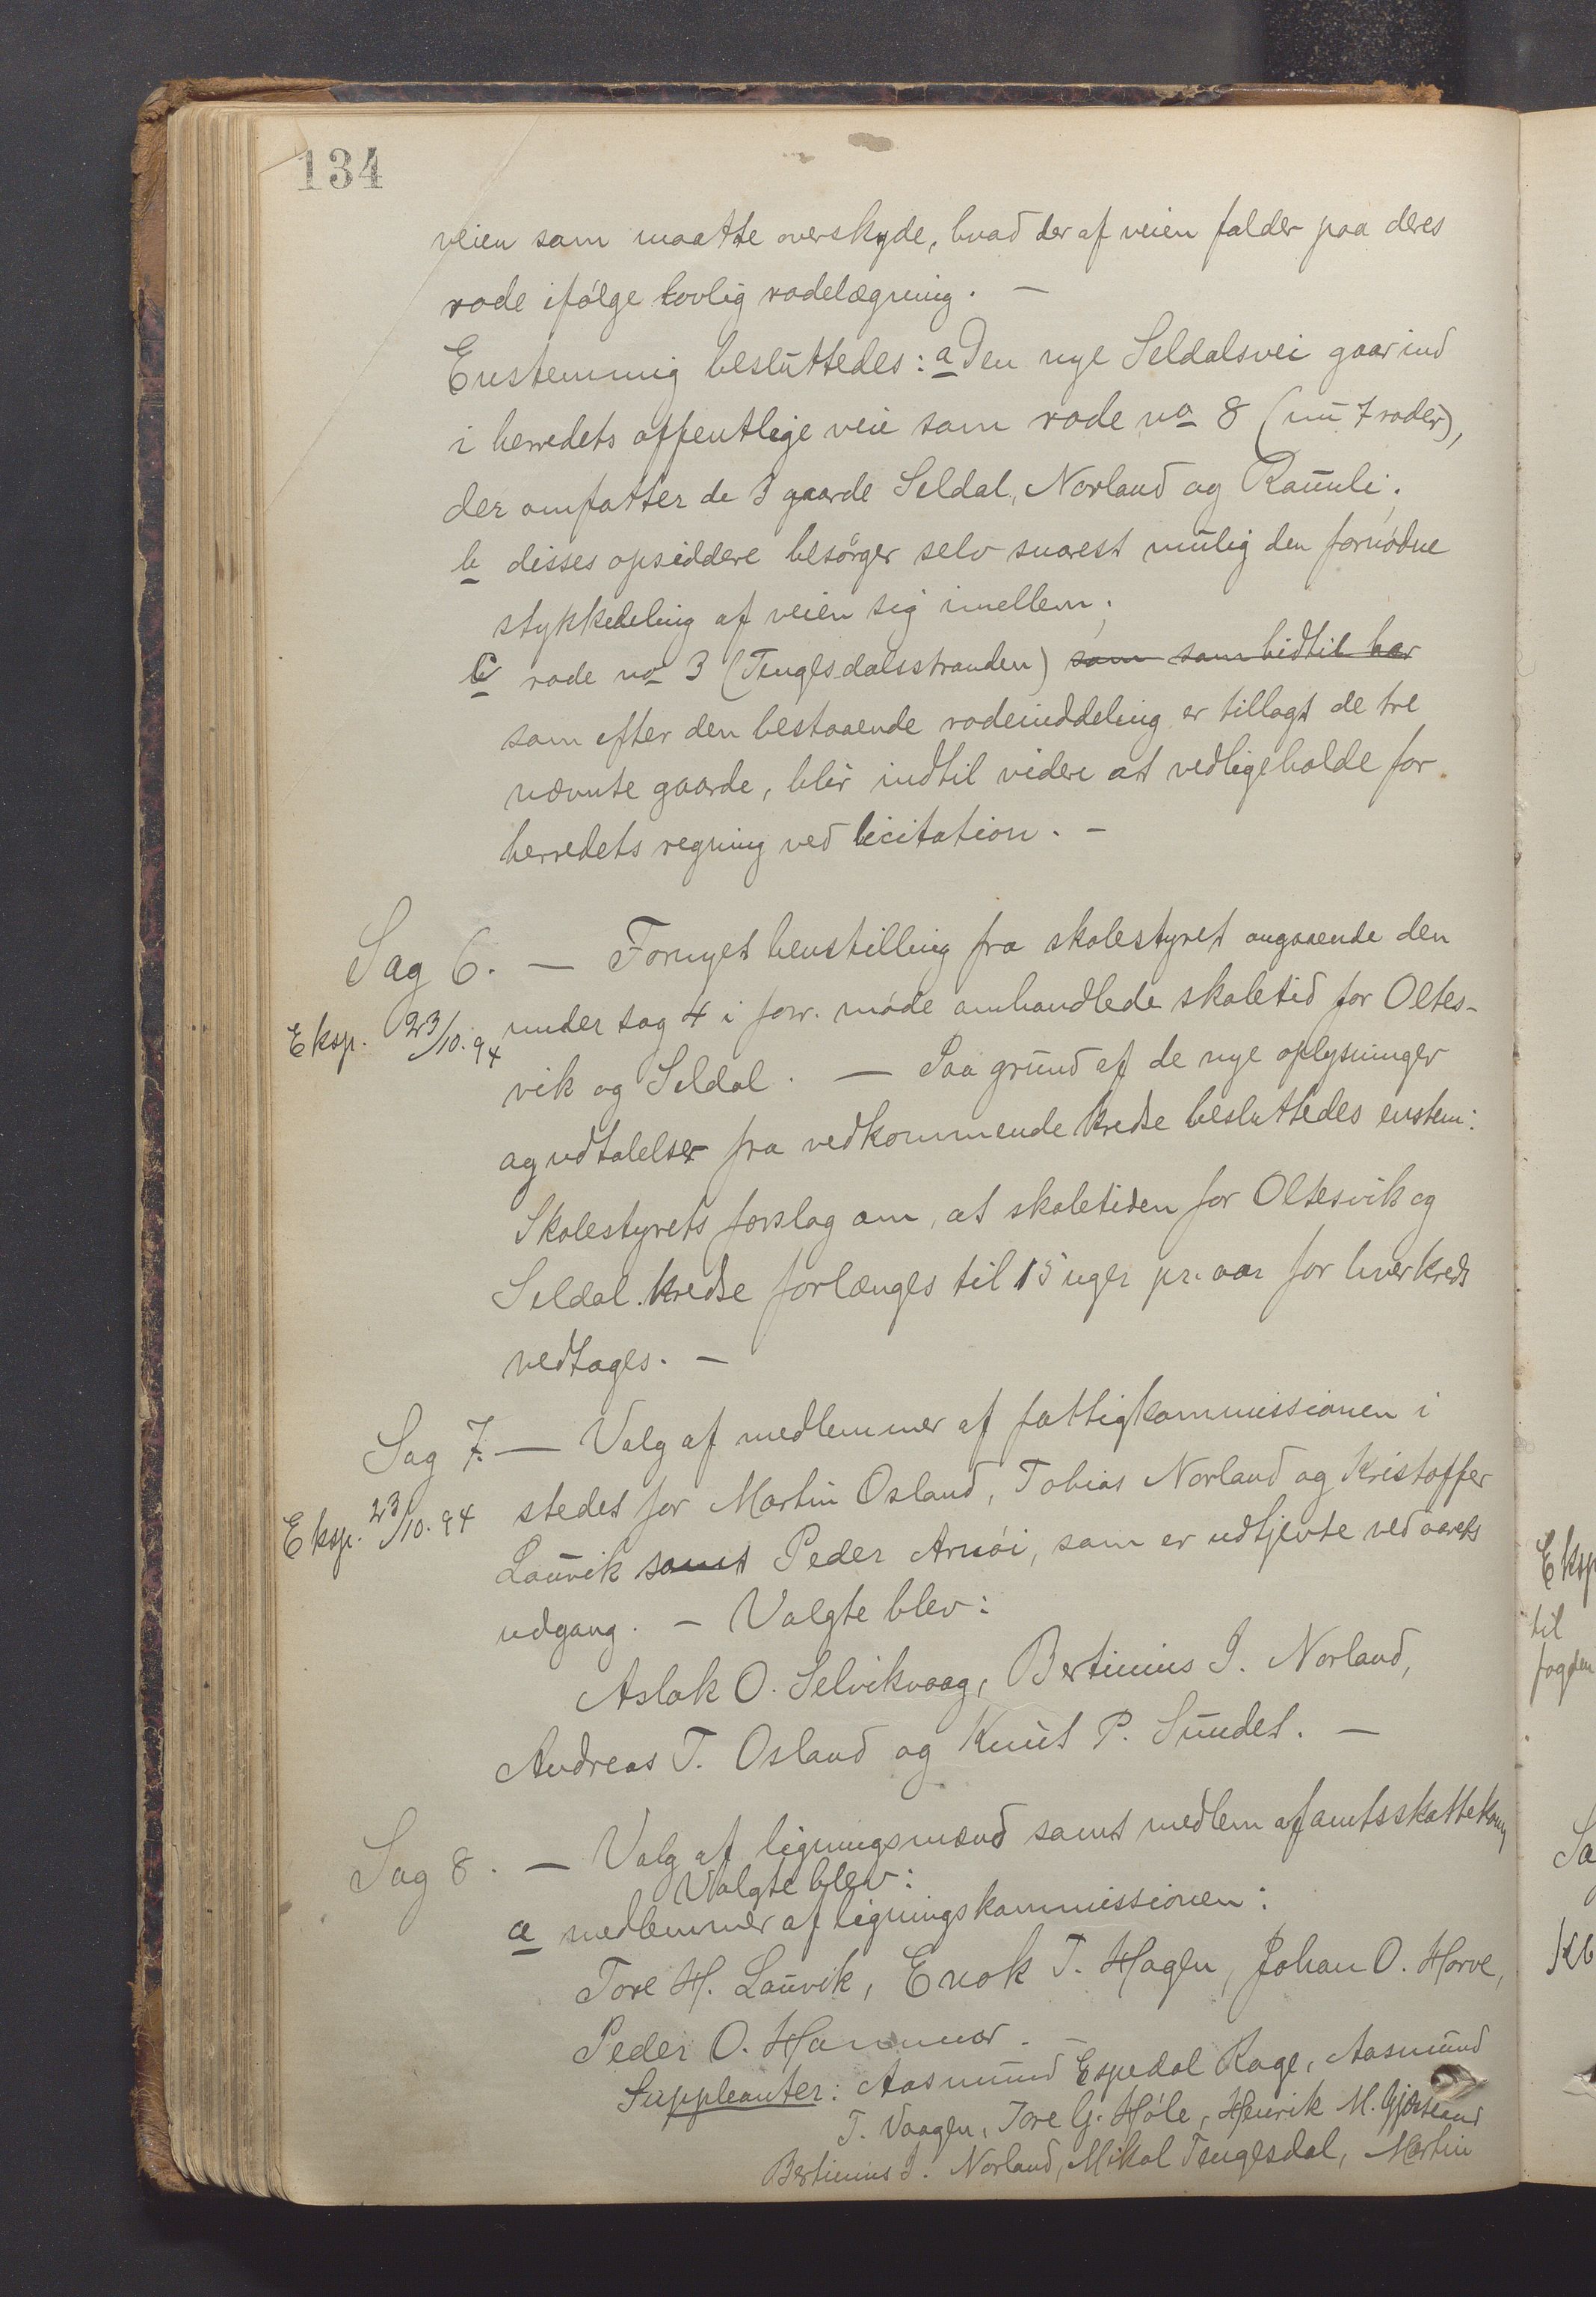 134
veien som maatte overskyde, hvad der af veien falder paa deres
rode ifölge lovlig rodelægning. —
Enstemmig besluttedes: a Den nye Seldalsvei gaar ind
i herredets offentlige veie som rode no 8 (nu 7 roder),
der omfatter de 3 gaarde Seldal, Norland og Raunli;
b disses opsiddere besörger selv snarest mulig den fornödne
stykkedeling af veien sig imellem;
c rode no 3 (Tengesdalsstranden) som som hidtil har
som efter den bestaaende rodeinddeling er tillagt de tre
nævnte gaarde, blir indtil videre at vedligeholde for
herredets regning ved licitation. —
Sag 6. — Fornyet henstilling fra skolestyret angaaende den
Eksp. 23/10. 94
under sag 4 i forr. möde omhandlede skoletid for Oltes-
vik og Seldal. — Paa grund af de nye oplysninger
og udtalelser fra vedkommende kredse besluttedes enstem:
Skolestyrets forslag om, at skoletiden for Oltesvik og
Seldal kredse forlænges til 15 uger pr. aar for hver kreds
vedtages. —
Sag 7. — Valg af medlemmer af fattigkommissionen i
Eksp. 23/10. 94
stedet for Martin Osland, Tobias Norland og Kristoffer
Lauvik samt Peder Arnöi, som er udtjente ved aarets
udgang. — Valgte blev:
Aslak O. Selvikvaag, Bertinius I. Norland,
Andreas T. Osland og Knut P. Sundet. —
Sag 8. — Valg af ligningsmænd samt medlem af amtsskattekom
Valgte blev:
a medlemmer af ligningskommissionen:
Tore H. Lauvik, Enok T. Hagen, Johan O. Horve,
Peder O. Hammer. —
Suppleanter: Aasmund Espedal Rage, Aasmund
T. Vaagen, Tore G. Höle, Henrik M. Gjörteland
Bertinius I. Norland, Mikal Tengesdal, Martin
Eksp
til
fogden
Sa